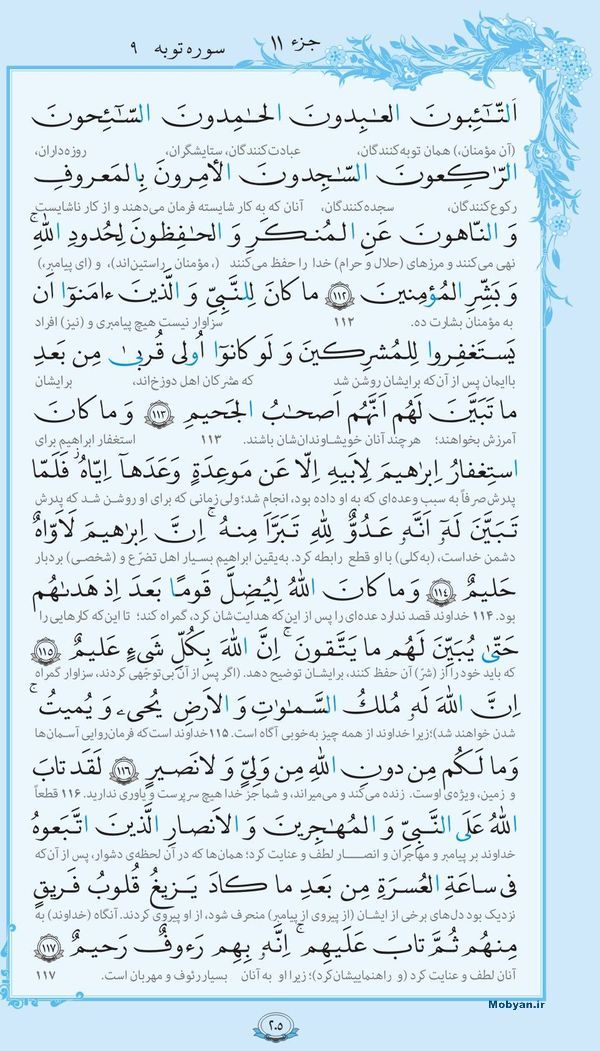 جزء ۱۱ سوره توبه ۹
اَلتّٰٓائِبونَ العٰبِدونَ الحٰمِدونَ السّٰٓائِحونَ
(آن مؤمنان،) همان توبه‌کنندگان، عبادت‌کنندگان، ستایشگران، روزه‌داران،
الرّٰاكِعونَ السّٰجِدونَ الأمِرونَ بِالمَعروفِ
رکوع‌کنندگان، سجده‌کنندگان، آنان که به کار شایسته فرمان می‌دهند و از کار ناشایست
وَ النّاهونَ عَنِ المُنكَرِ وَ الحٰفِظونَ لِحُدودِ اللّٰهِ ۚ
نهی می‌کنند و مرزهای (حلال و حرام) خدا را حفظ می‌کنند (، مؤمنان راستین‌اند)، و (ای پیامبر،)
وَ بَشِّرِ المُؤمِنينَ ﴿۱۱۲﴾ ما كانَ لِلنَّبِيِّ وَ الَّذينَ ءامَنوٓا اَن
به مؤمنان بشارت ده. ۱۱۲ سزاوار نیست هیچ پیامبری و (نیز) افراد
يَستَغفِروا لِلمُشرِكينَ وَ لَو كانوٓا اُولى قُربىٰ مِن بَعدِ
باایمان پس از آن‌که برایشان روشن شد که مشرکان اهل دوزخ‌اند، برایشان
ما تَبَيَّنَ لَهُم اَنَّهُم اَصحٰبُ الجَحيمِ ﴿۱۱۳﴾ وَ ما كانَ
آمرزش بخواهند؛ هرچند آنان خویشاوندان‌شان باشند. ۱۱۳ استغفار ابراهیم برای
استِغفارُ اِبرٰهيمَ لِاَبيهِ اِلّا عَن مَوعِدَةٍ وَعَدَهآ اِيّاهُ ۚ فَلَمّا
پدرش صرفاً به سبب وعده‌ای که به او داده بود، انجام شد؛ ولی زمانی که برای او روشن شد که پدرش
تَبَيَّنَ لَهٗٓ اَنَّهٗ عَدُوٌّ لِلّٰهِ تَبَرَّاَ مِنهُ ۚ اِنَّ اِبرٰهيمَ لَاَوّٰاهٌ
دشمن خداست، (به‌کلی) با او قطع رابطه کرد. به‌یقین ابراهیم بسیار اهل تضرّع و (شخصی) بردبار
حَليمٌ ﴿۱۱۴﴾ وَ ما كانَ اللّٰهُ لِيُضِلَّ قَومًا بَعدَ اِذ هَدىٰهُم
بود. ۱۱۴ خداوند قصد ندارد عده‌ای را پس از این‌که هدایت‌شان کرد، گمراه کند؛ تا این‌که کارهایی را
حَتّىٰ يُبَيِّنَ لَهُم ما يَتَّقونَ ۚ اِنَّ اللّٰهَ بِكُلِّ شَىءٍ عَليمٌ ﴿۱۱۵﴾
که باید خود را از (شرّ) آن حفظ کنند، برایشان توضیح دهد. (اگر پس از آن بی‌توجّهی کردند، سزاوار گمراه
اِنَّ اللّٰهَ لَهٗ مُلكُ السَّمٰوٰتِ وَ الاَرضِ يُحيى وَ يُميتُ ۚ
شدن خواهند شد)؛ زیرا خداوند از همه چیز به‌خوبی آگاه است. ۱۱۵ خداوند است که فرمان‌روایی آسمان‌ها
وَ ما لَكُم مِن دونِ اللّٰهِ مِن وَلِيٍّ وَ لا نَصيرٍ ﴿۱۱۶﴾ لَقَد تابَ
و زمین، ویژه‌ی اوست. زنده می‌کند و می‌میراند، و شما جز خدا هیچ سرپرست و یاوری ندارید. ۱۱۶ قطعاً
اللّٰهُ عَلَى النَّبِيِّ وَ المُهٰجِرينَ وَ الاَنصارِ الَّذينَ اتَّبَعوهُ
خداوند بر پیامبر و مهاجران و انصــار لطف و عنایت کرد؛ همان‌ها که در آن لحظه‌ی دشوار، پس از آن‌که
فى ساعَةِ العُسرَةِ مِن بَعدِ ما كادَ يَزيغُ قُلوبُ فَريقٍ
نزدیک بود دل‌های برخی از ایشان (از پیروی از پیامبر) منحرف شود، از او پیروی کردند. آنگاه (خداوند) به
مِنهُم ثُمَّ تابَ عَلَيهِم ۚ اِنَّهٗ بِهِم رَءوفٌ رَحيمٌ ﴿۱۱۷﴾
آنان لطف و عنایت کرد (و راهنماییشان کرد)؛ زیرا او به آنان بسیار رئوف و مهربان است. ۱۱۷
Mobyan.ir
۲۰۵